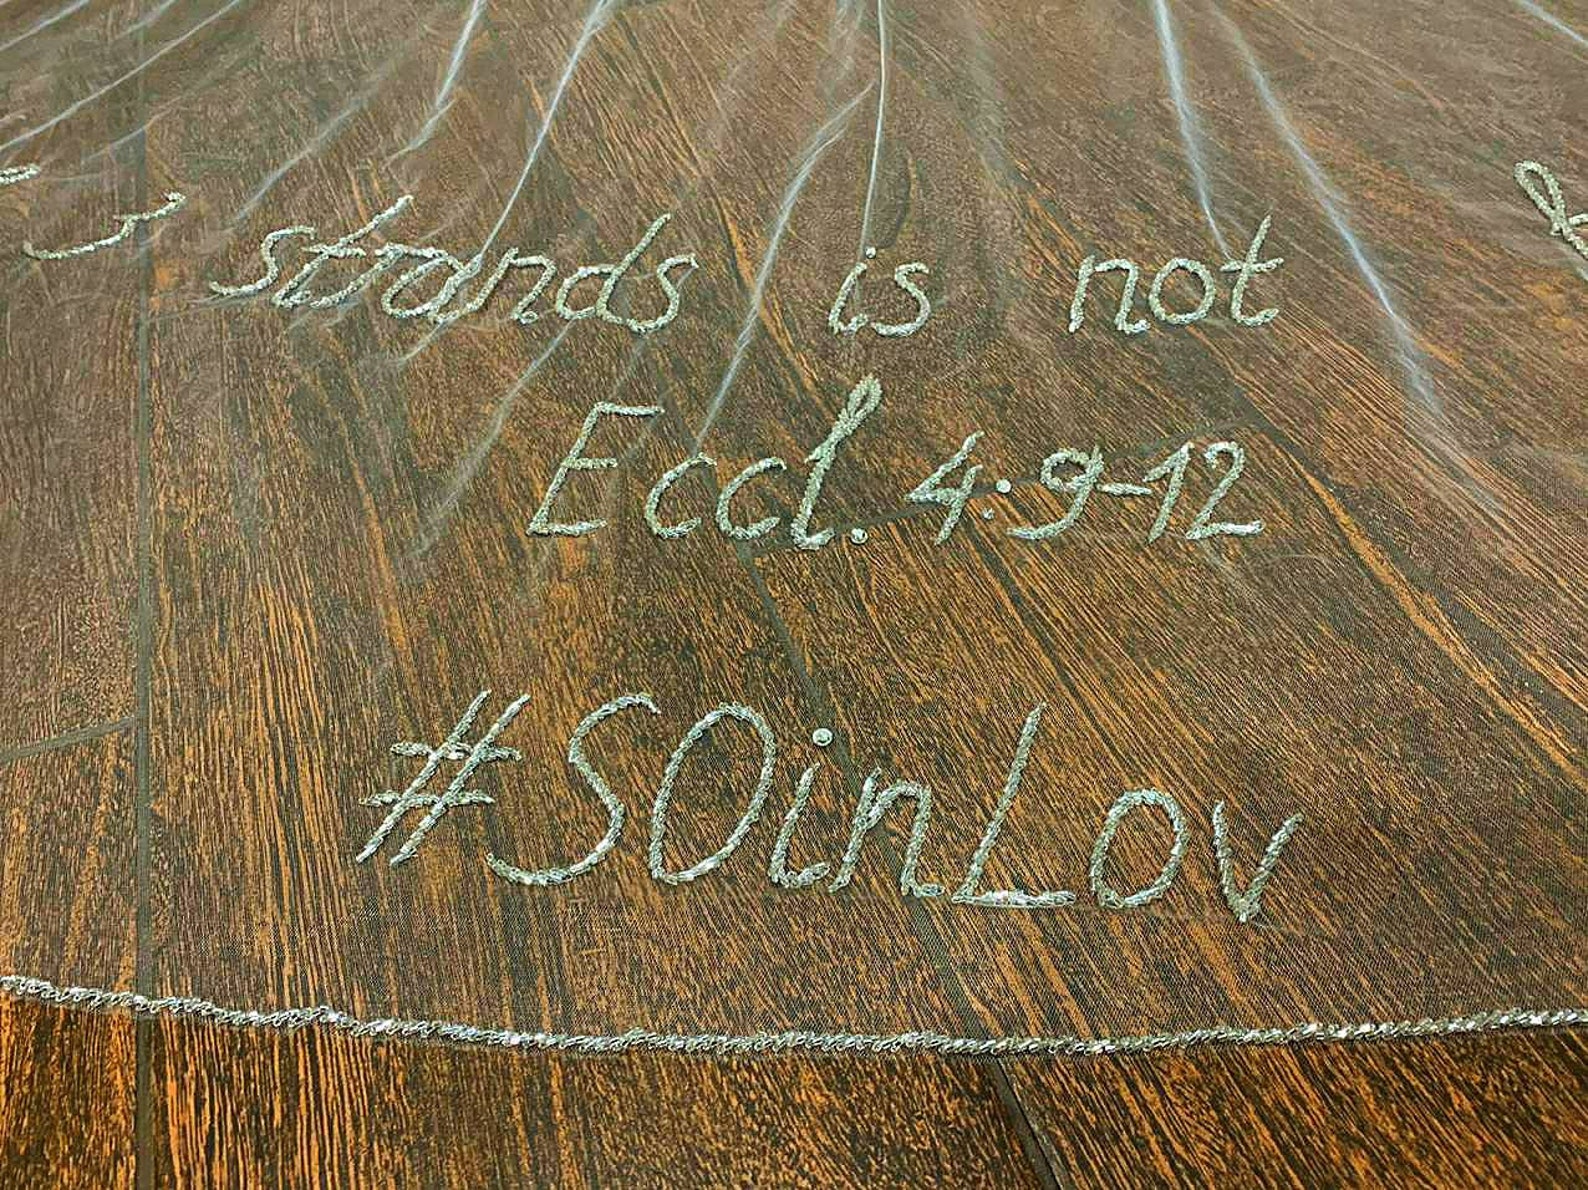 3 strands is not
Eccl. 4:9-12
#SOinLov